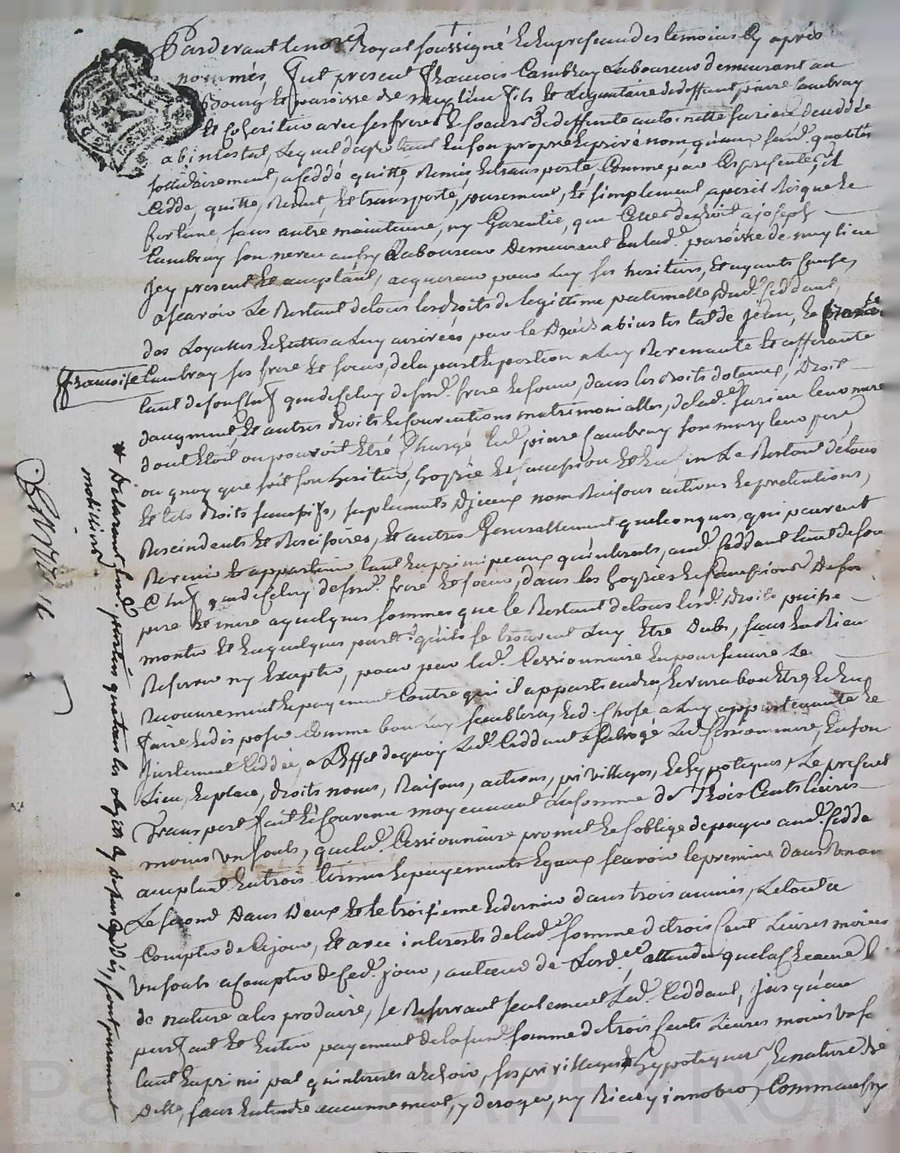 Pardevant le no.re Royal soussigné et en presence des temoins Cy après
nommés, fut present françois Cambray Laboureur demeurant au
Bourg et paroisse de muylieu fils et Legataire de deffunt pierre Cambray
et Coheritier avec ses freres et soeurs de deffunte antoinette
abintestat, Lequel de gré tant En son propre et privé nom, qu'aux qualités
sollidairement, a Ceddé quitté, Remis, et transporté Comme par Ces presentes, il
Cedde, quitte, Remet, et transporte, purement, et simplement, a peril Risque et
fortune, sans autre maintenue, ny Garentie, que Celle de droit a joseph
Cambray son neveu aussy Laboureur Demeurant En lad.e paroisse de muylieu
jcy present et acceptant, acquereur pour Luy ses heritiers, et ayants Cause,
a scavoir Le Restant de tous les droits de legittime paternelle Dud. Ceddant,
des Loyattes Echutes a Luy arrivées par le Deces abintestat de jean, et
françoise Cambray ses frere et soeur, de la part et portion a Luy Revenante et afferante
tant de son chef que de celuy desd. frere et soeur, dans les droits dotaux, Droit
daugment et autres droits et Conventions matrimonialles, de lad.e leur mere
dont Etoit ou pouvoit Etre Chargé Led. pierre Cambray son mary leur pere
ou quoy que soit son heritier, hoyrie et succession et En fin Le Restant de tous
et tels droits successifs, suplements Djceux nom Raisons actions et pretentions,
Rescindents et Rescisoires, et autres Generallement quelconques, qui peuvent
Revenir et appartenir tant En principaux qu'interets, aud. Ceddant tant de son
Chef que de celuy desd. frere et soeur, dans les hoyries et successions De ses
pere et mere a quelques sommes que le Restant de tous lesd. Droits puisse
monter et En quelques parts qu'ils se trouvent Luy Etre Dubs, sans En Rien
Reserver ny Excepter, pour par led. Cessionnaire En poursuivre Le
Recouvrement et payement Contre qui il appartiendra, et verra bon Etre, et En
faire et disposer Comme bon Luy semblera, Et de Chose a Luy appartenante et
justement Ceddée, a L'effet de quoy Led. Ceddant a subrogé Led. Cessionnaire, En son
Lieu, et place, droits noms, Raisons, actions, privilleges, et hypoteques, Le present
Transport fait Et Convenu moyennant La somme de Trois Cents Livres
moins un souls, que led. Cessionnaire promet et s'oblige de payer aud. Cedd.
acceptant En trois termes et payements Egaux scavoir le premier dans un an
Le second Dans Deux et le troisieme et dernier dans trois années, Le tout a
Compter de Ce jour, et avec interets de lad.e somme de trois Cent Livres moins
un souls a Compter de Ced. jour, au taux de L'ord.ce attendu que la Creance
de nature a les produire, se Reservant seulement Led. Ceddant, jusqu'au
parfait et Entier payement de lad. somme de trois Cents Livres moins un s.
tant En principal qu'interets a Echoir, ses privilleges hypoteques, et nature de
dette, sans Entendre aucunement, y deroger, ny Rien y innover, Comme aussy
françoise
mobiliers
Pascal CHAREYRON